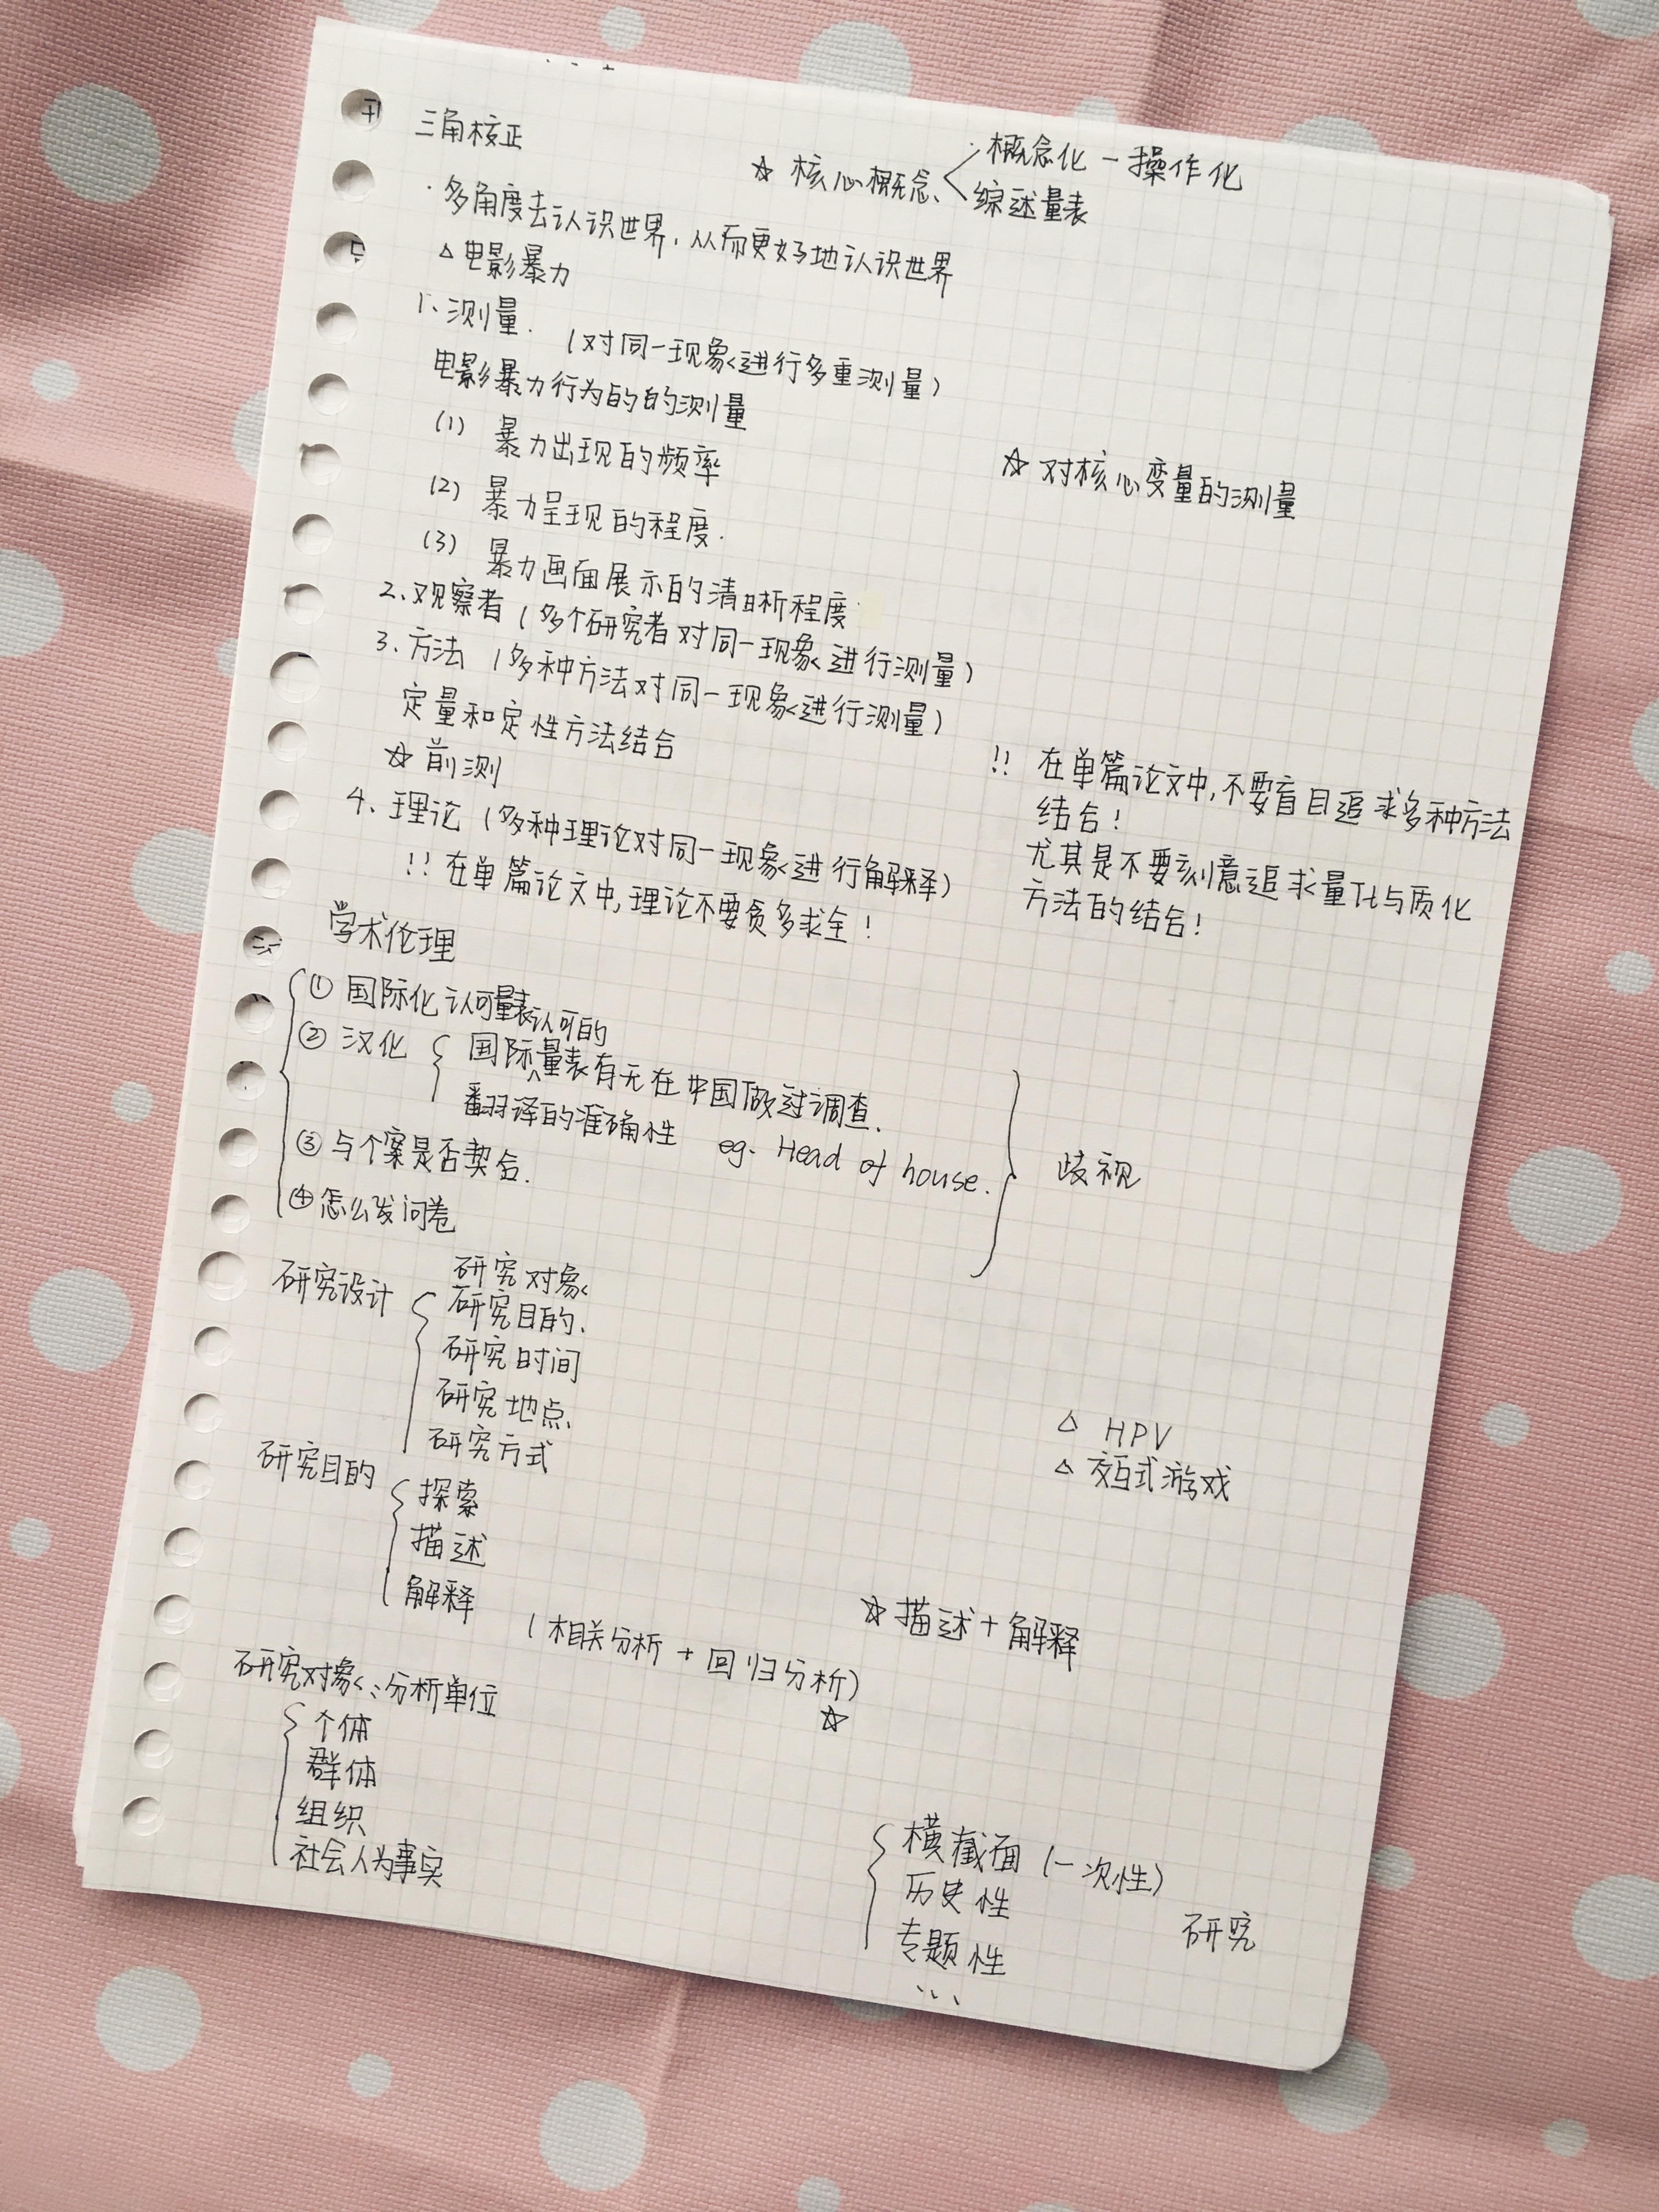 三角校正
☆ 核心概念、
·概念化 — 操作化
综述量表
· 多角度去认识世界，从而更好地认识世界
△ 电影暴力
1、测量. （对同一现象进行多重测量）
电影暴力行为的的测量
(1) 暴力出现的频率
☆ 对核心变量的测量
(2) 暴力呈现的程度.
(3) 暴力画面展示的清晰程度
2、观察者（多个研究者对同一现象进行测量）
3、方法（多种方法对同一现象进行测量）
定量和定性方法结合
☆ 前测
!! 在单篇论文中,不要盲目追求多种方法
结合!
尤其是不要刻意追求量化与质化
方法的结合!
4、理论（多种理论对同一现象进行解释）
!! 在单篇论文中,理论不要贪多求全!
学术伦理
① 国际化 认可量表
认可的
② 汉化 国际量表有无在中国做过调查.
翻译的准确性 eg. Head of house.
③ 与个案是否契合.
④ 怎么发问卷
歧视
研究设计
研究对象
研究目的、
研究时间
研究地点、
研究方式
△ HPV
△ 交互式游戏
研究目的
探索
描述
解释 （相关分析 + 回归分析）
☆
☆ 描述 + 解释
研究对象:分析单位
个体
群体
组织
社会人为事实
横截面（一次性）
历史性
专题性
...
研究